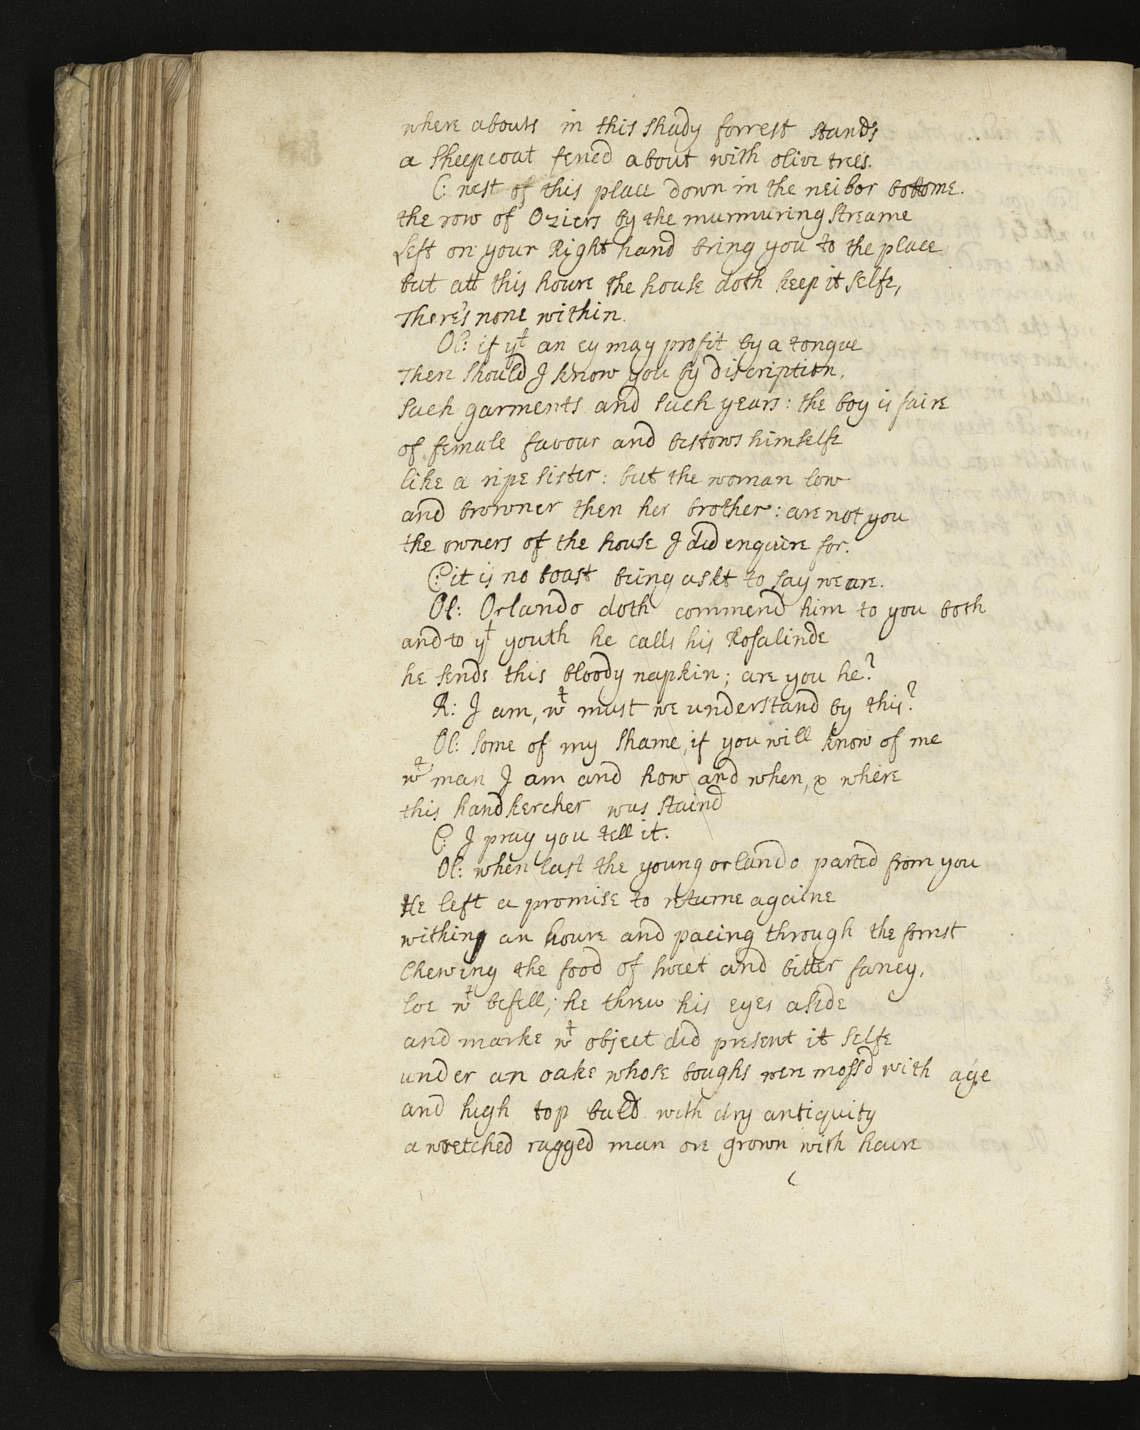 where abouts in this shady forrest stands
a sheepcoat fenced about with olive trees.
C: nest of this place down in the neibor bottome.
the row of Oziers by the murmuring streame
Left on your Right hand bring you to the place
but att this houre the house doth keep it selfe,
There's none within.
Ol: if yt an ey may profit by a tongue
Then should I know you by discription.
such garments and such years: the boy is faire
of female favour and bestows himselfe
like a ripe sister: but the woman low
and browner then her brother: are not you
the owners of the house I did enquire for.
C: it is no boast being askt to say we are.
Ol: Orlando doth commend him to you both
and to yt youth he calls his Rosalinde
he sends this bloody napkin; are you he?
R: I am, wt must we understand by this?
Ol: some of my shame, if you will know of me
wt man I am and how and when, & where
this handkercher was staind
C: I pray you tell it.
Ol: when last the young orlando parted from you
He left a promise to returne againe
within an houre and paceing through the forrest
Chewing the food of sweet and bitter fancy.
loe wt befell; he threw his eyes aside
and marke wt object did present it selfe
under an oake whose boughs were moss'd with age
and high top bald with dry antiquity
a wretched ragged man ore grown with haire